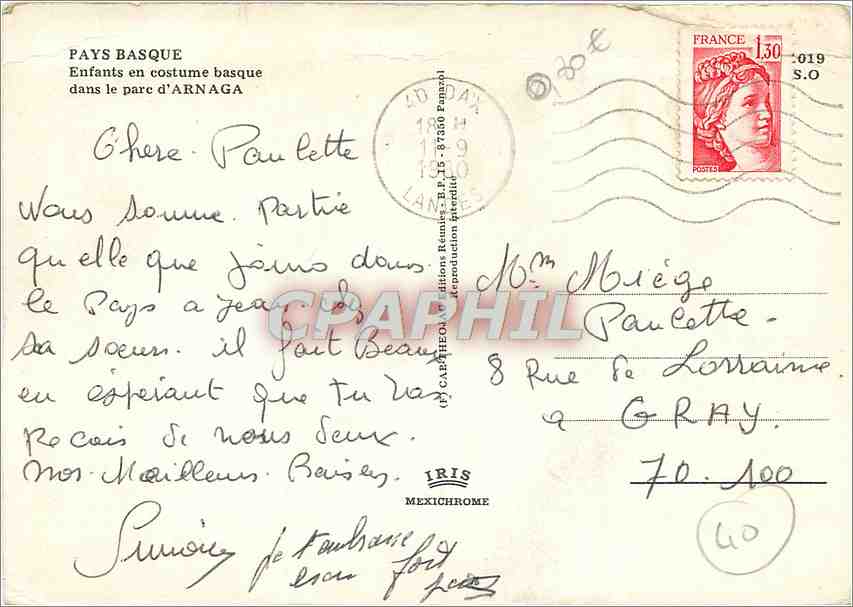 PAYS BASQUE
Enfants en costume basque
dans le parc d'ARNAGA
Chere. Paulette
Nous somme. Partie
qu elle que jours dans.
le Pays a Jean. chez
sa soeurs. il fait Beau
en esperant que tu vas.
Recois de nous deux.
nos. Meilleurs. Baisers.
Simone je t'embrasse
fort
(F) CAR-THEOJAC Editions Réunies - B.P. 15 - 87350 Panazol
Reproduction interdite
IRIS
MEXICHROME
0,80 €
40 DAX
18 H
11-9
1980
LANDES
FRANCE 1,30
POSTES
1019
S.O
Mme Miége
Paulette.
8 Rue de Lorraine.
a GRAY.
70.100
40
CPAPHIL